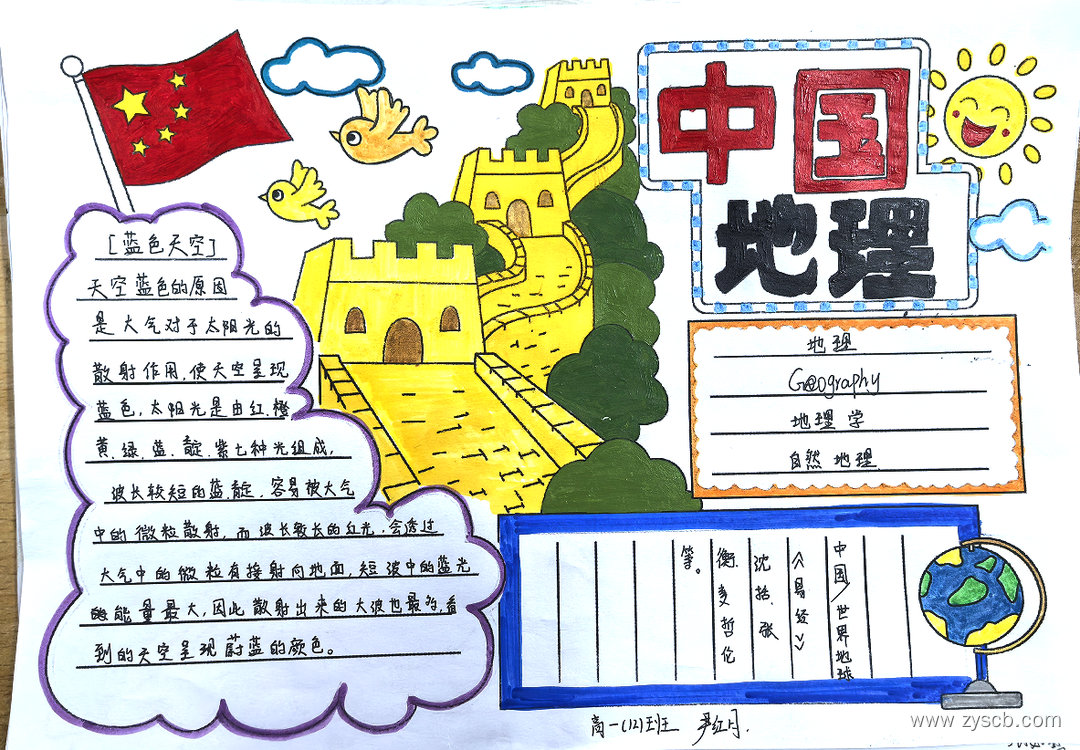 中国
地理
[蓝色天空]
天空蓝色的原因
是大气对于太阳光的
散射作用,使天空呈现
蓝色,太阳光是由红.橙
黄.绿.蓝.靛.紫七种光组成,
波长较短的蓝.靛.容易被大气
中的微粒散射,而波长较长的红光.会透过
大气中的微粒有接射向地面,短波中的蓝光
能量最大,因此散射出来的大波也最多,看
到的天空呈现蔚蓝的颜色。
地理
Geography
地理学
自然地理
中国/世界地球
《易经》
沈括.张
衡.麦哲伦
等。
高一(12)班
www.zyscb.com